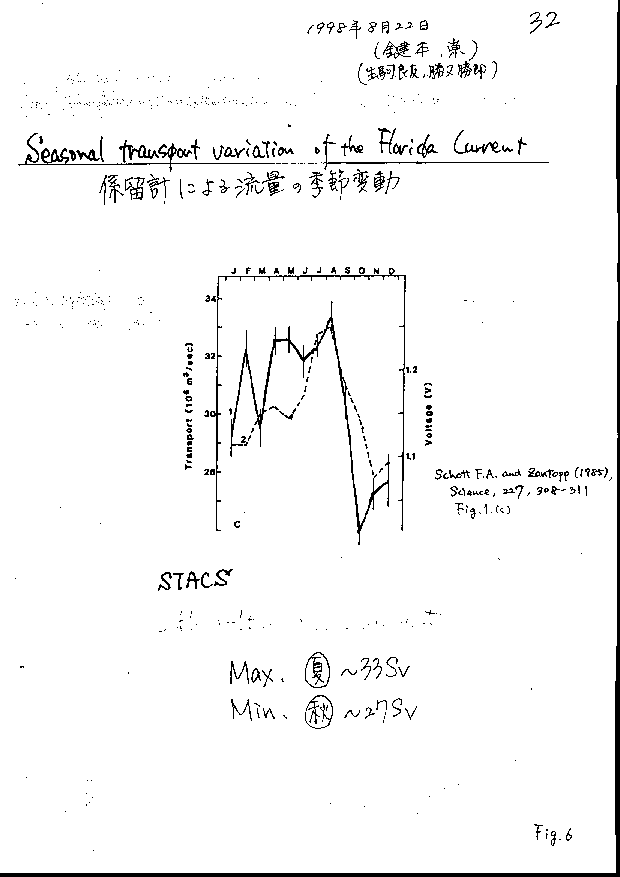 32
1998年8月22日
(鍵本 崇)
(生駒良友, 勝又勝郎)
Seasonal transport variation of the Florida Current
係留計による流量の季節変動
J F M A M J J A S O N D
34
32
30
28
Transport (10⁶ m³/sec)
1
2
1.2
1.1
Voltage (V)
C
Schott F.A. and Zantopp (1985),
Science, 227, 308-311
Fig.1.(c)
STACS
Max. 夏 ~33Sv
Min. 秋 ~27Sv
Fig.6